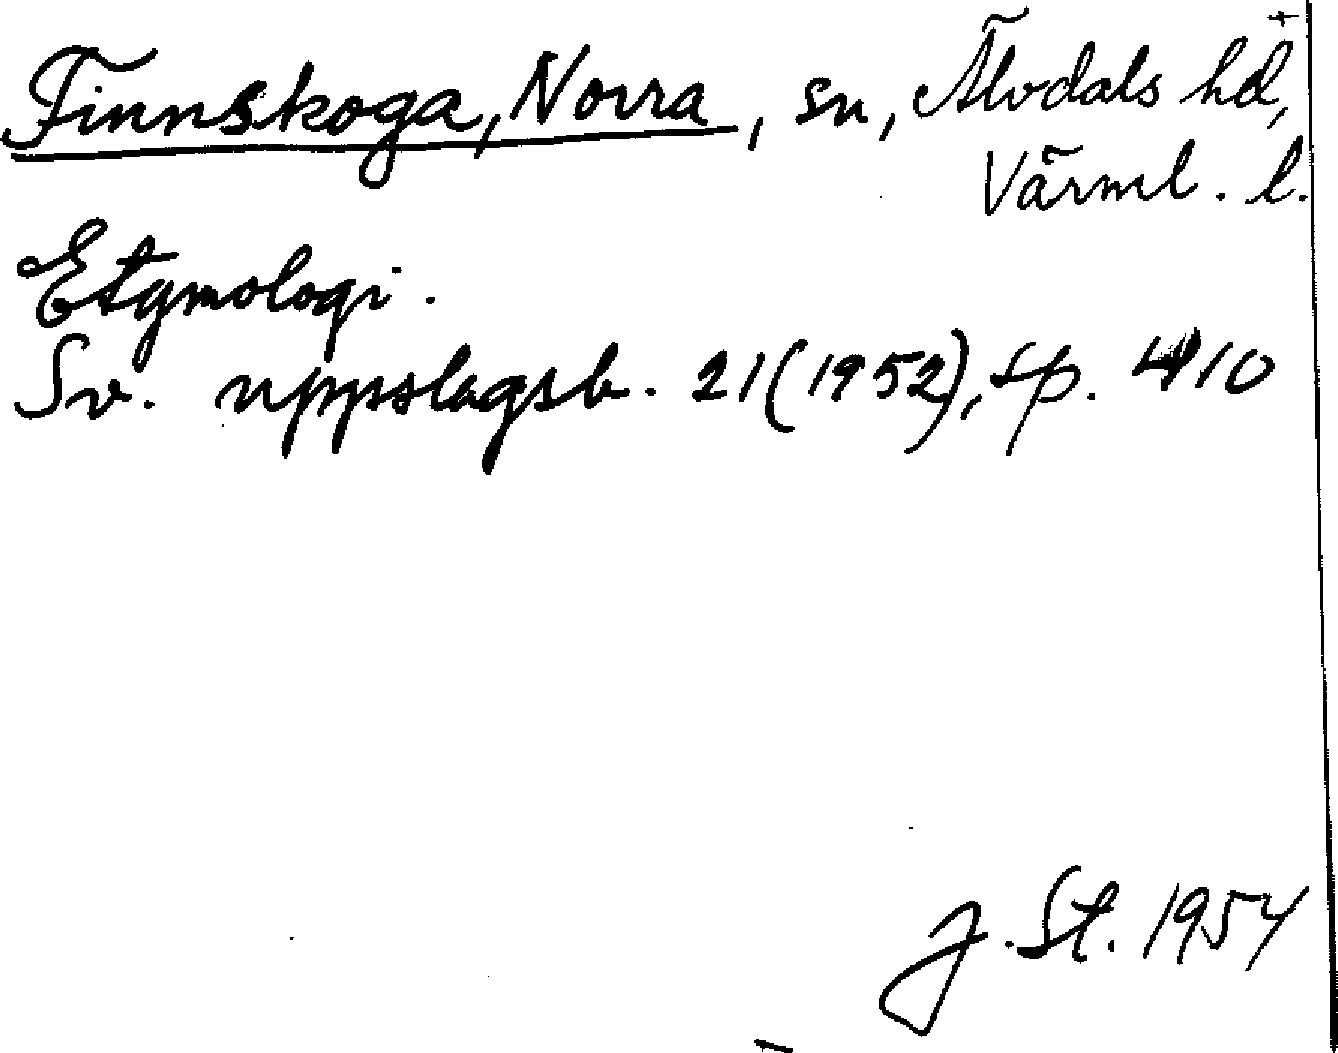 Finnskoga, Norra, sn, Älvdals hd,
Värml. l.
Etymologi.
Sv. uppslagsb. 21 (1952), sp. 410
J. St. 1954